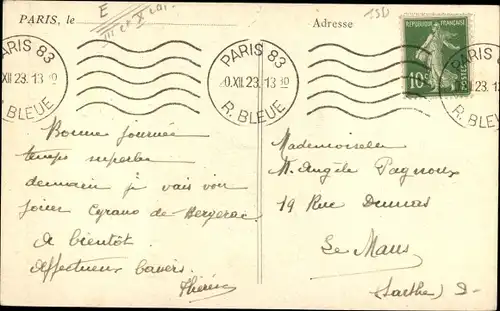 PARIS, le
E
Adresse
PARIS 83
XII 23. 13
R. BLEUE
PARIS 83
0.XII 23. 13 10
R. BLEUE
RÉPUBLIQUE FRANÇAISE
10c
POSTES
R. BLEUE
Bonne journée
temps superbe
demain je vais voir
jouer Cyrano de Bergerac
A bientôt
Affectueux baisers.
Thérèse
Mademoiselle
M. Angèle Pagnoux
19 Rue Dumas
Le Mans
(Sarthe)